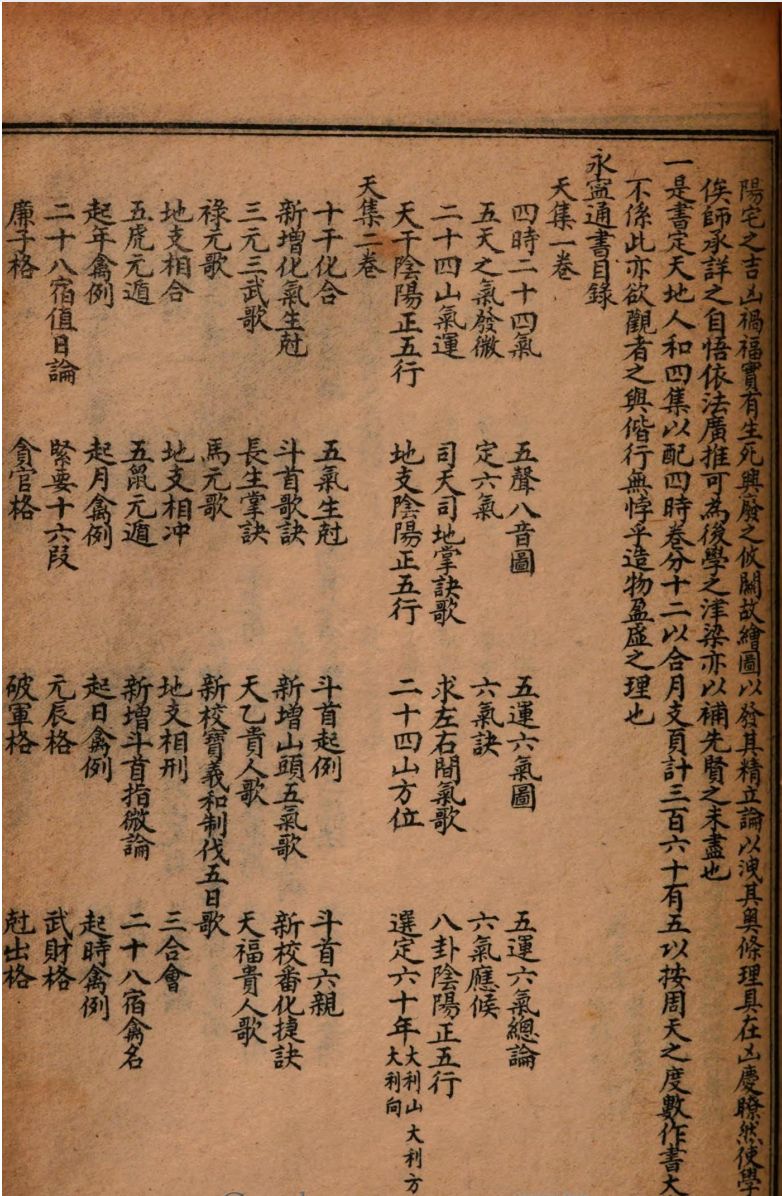 陽宅之吉凶禍福實有生死興廢之攸關故繪圖以發其精立論以洩其奧條理具在凶慶瞭然使學
俟師承詳之自悟依法廣推可為後學之津梁亦以補先賢之未盡也
一是書定天地人和四集以配四時卷分十二以合月支頁計三百六十有五以按周天之度數作書大
不係此亦欲觀者之與偕行無悖乎造物盈虛之理也
永寍通書目錄
天集一卷
四時二十四氣 五聲八音圖 五運六氣圖 五運六氣總論
五天之氣發微 定六氣 六氣訣 六氣應候
二十四山氣運 司天司地掌訣歌 求左右間氣歌 八卦陰陽正五行
天干陰陽正五行 地支陰陽正五行 二十四山方位 選定六十年大利山大利方大利向
天集二卷
十干化合 五氣生尅 斗首起例 斗首六親
新增化氣生尅 斗首歌訣 新增山頭五氣歌 新校番化捷訣
三元三武歌 長生掌訣 天乙貴人歌 天福貴人歌
祿元歌 馬元歌 新校寶義和制伐五日歌
地支相合 地支相冲 地支相刑 三合會
五虎元遁 五鼠元遁 新增斗首指微論 二十八宿禽名
起年禽例 起月禽例 起日禽例 起時禽例
二十八宿值日論 緊要十六段 元辰格 武財格
廉子格 貪官格 破軍格 尅出格